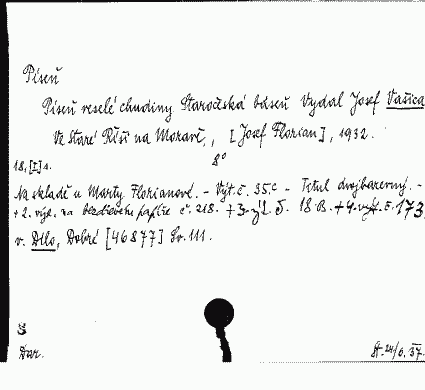 Píseň
Píseň veselé chudiny Staročeská báseň Vydal Josef Vašica
Ve Staré Říši na Moravě, , [Josef Florian], 1932.
8°
18, [I] s.
Na skladě u Marty Florianové. – Výt. č. 35. – Titul dvojbarevný. –
+ 2. výt. na č. 218. + 3. 18 B. + 4. výt. č. 173
v. Dílo, Dobré [46877] Sv. 111.
Dar.
24/6. 37.